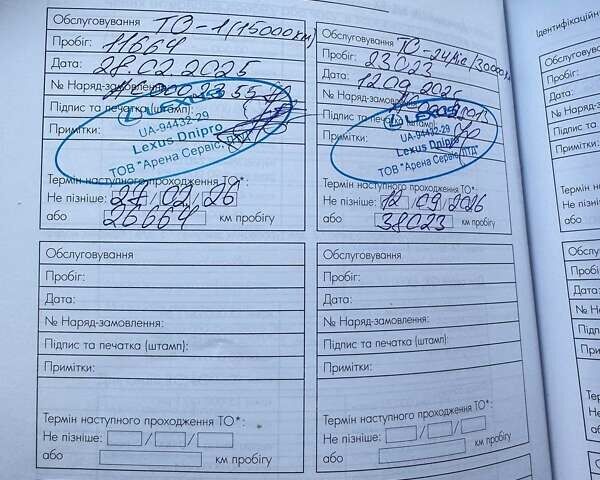 Обслуговування ТО-1 (15000км)
Пробіг: 11664
Дата: 28.02.2025
№ Наряд-замовлення:
Підпис та печатка (штамп):
Примітки:
LEXUS
UA-94432-29
Lexus Dnipro
ТОВ "Арена Сервіс, ЛТД"
Термін наступного проходження ТО*:
Не пізніше: 27/02/26
або 26664 км пробігу
Обслуговування ТО-2
Пробіг: 23023
Дата: 12.09.2025
№ Наряд-замовлення:
Підпис та печатка (штамп):
Примітки:
LEXUS
UA-94432-29
Lexus Dnipro
ТОВ "Арена Сервіс, ЛТД"
Термін наступного проходження ТО*:
Не пізніше: 12/09/2026
або 38023 км пробігу
Обслуговування
Пробіг:
Дата:
№ Наряд-замовлення:
Підпис та печатка (штамп):
Примітки:
Термін наступного проходження ТО*:
Не пізніше: / /
або км пробігу
Обслуговування
Пробіг:
Дата:
№ Наряд-замовлення:
Підпис та печатка (штамп):
Примітки:
Термін наступного проходження ТО*:
Не пізніше: / /
або км пробігу
Ідентифікаційн
Обслуговуван
Пробіг:
Дата:
Примітки
або